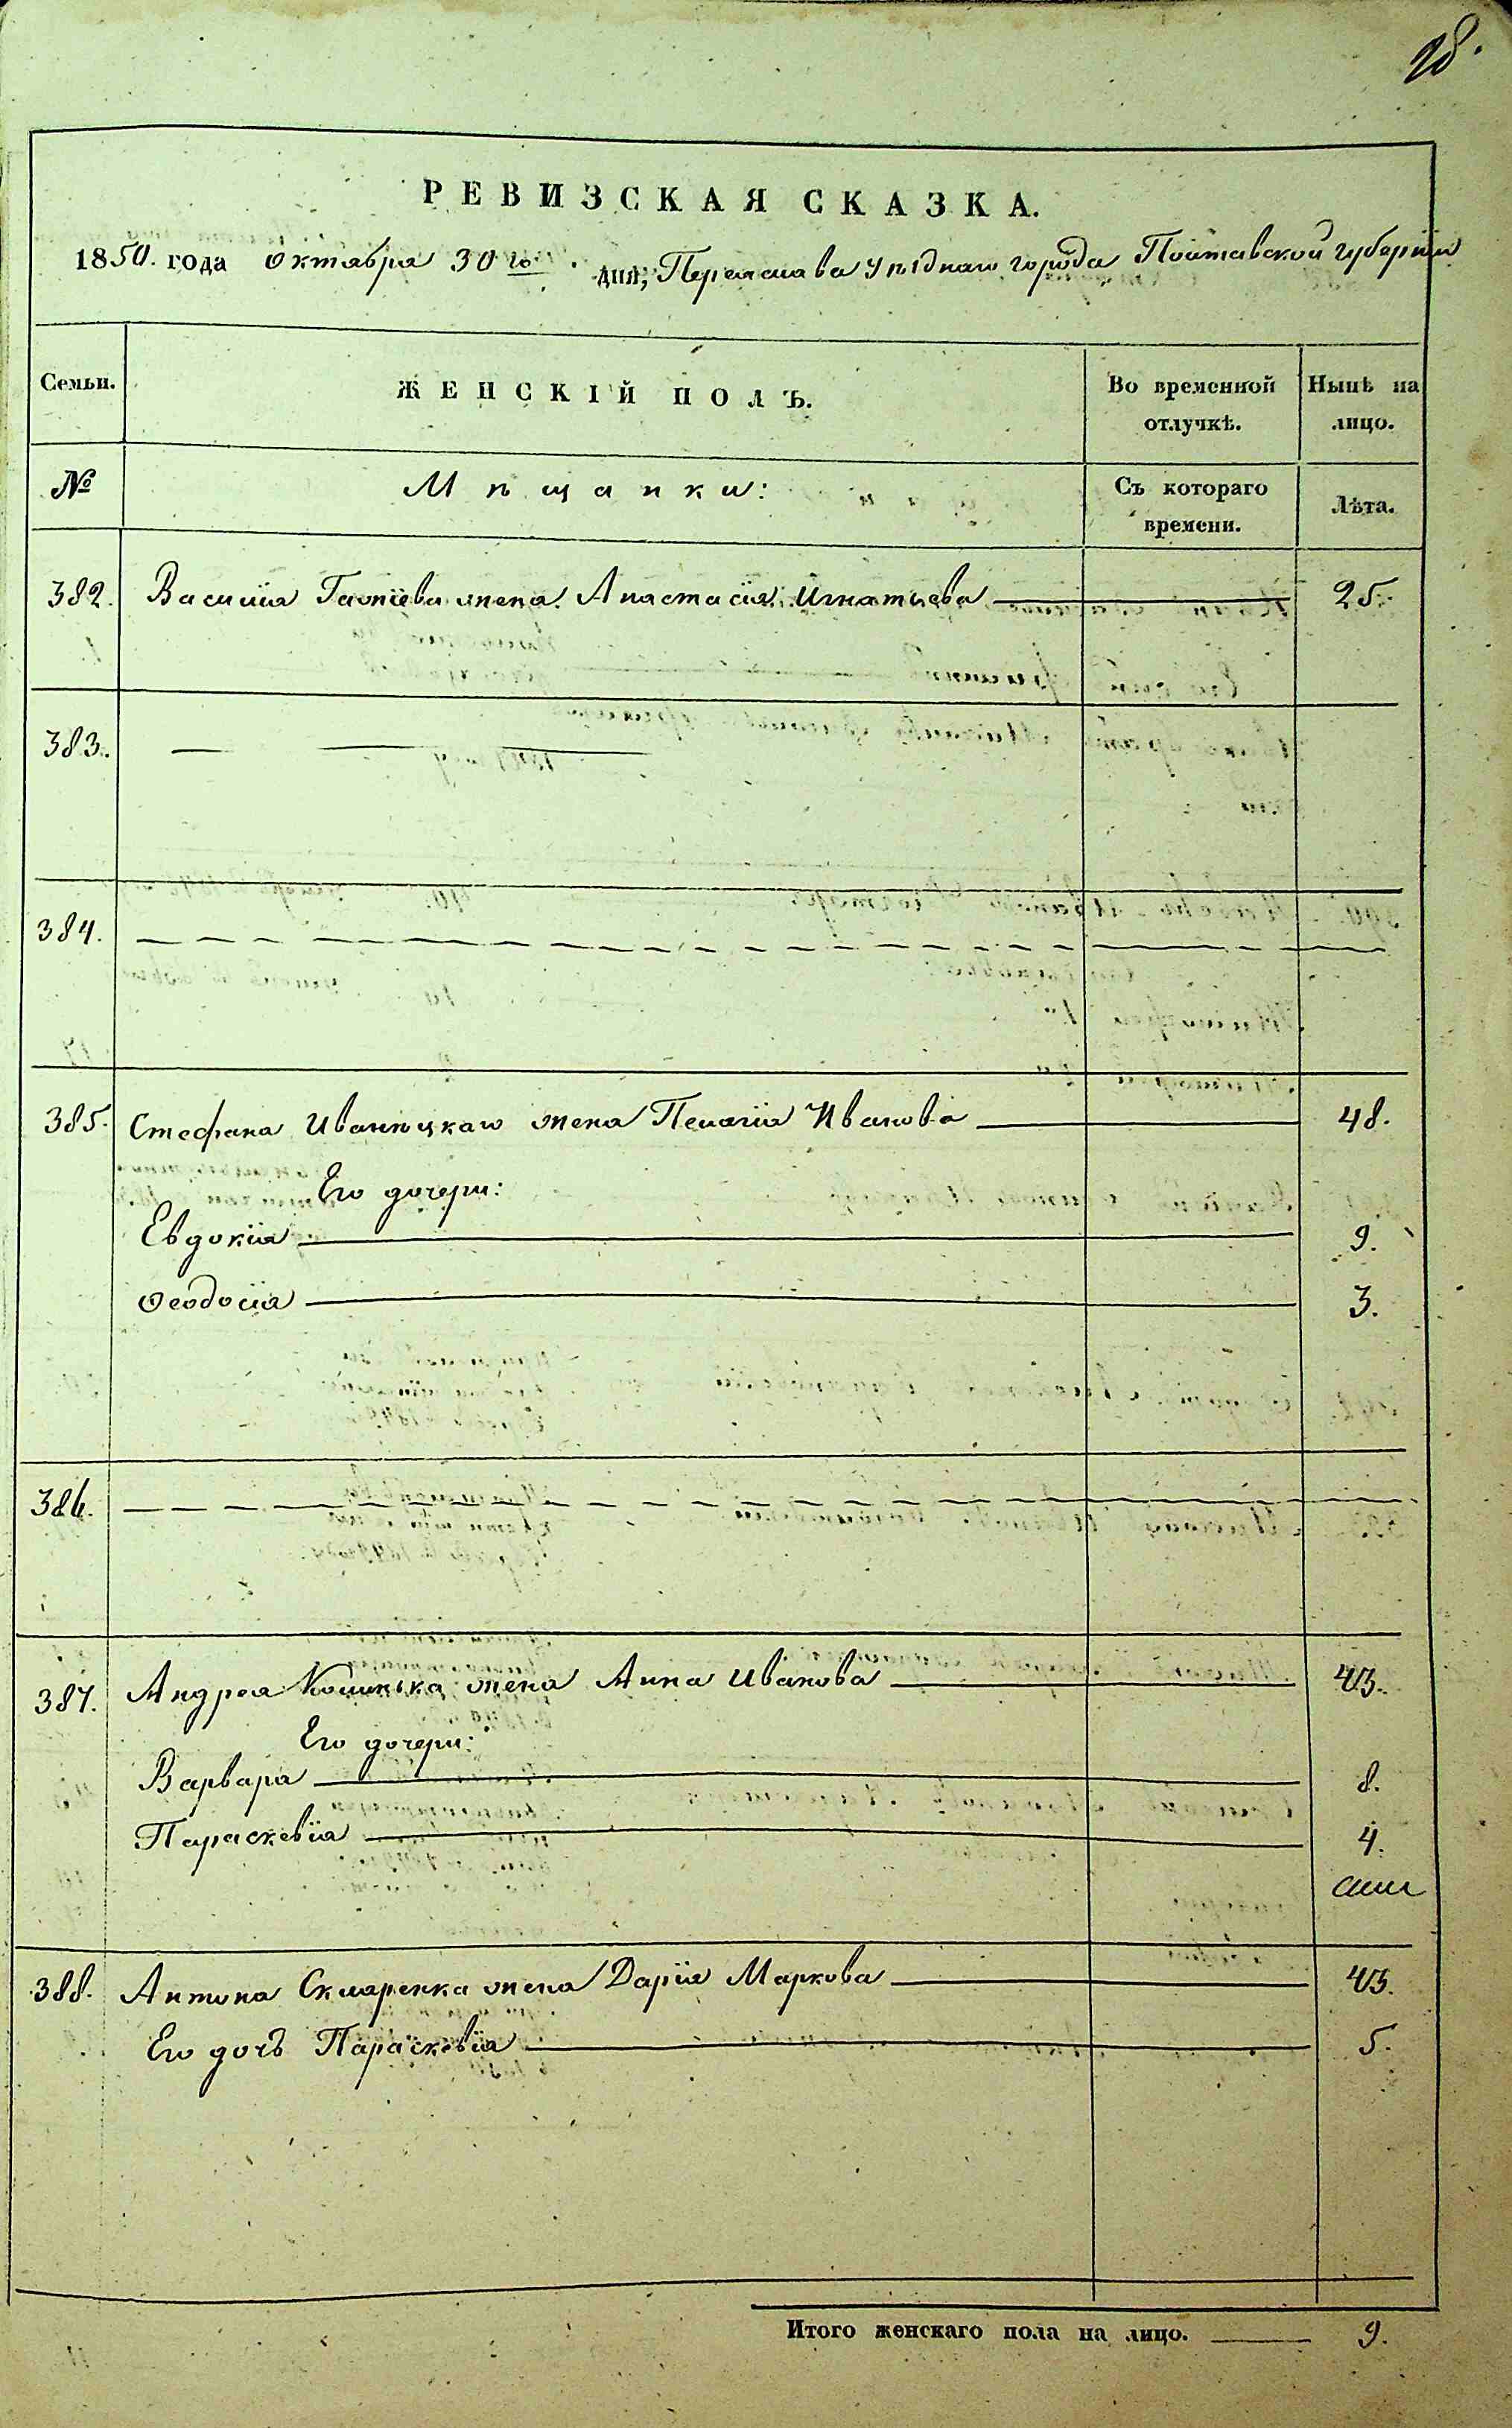 28.
РЕВИЗСКАЯ СКАЗКА.
1850. года октября 30го дня; Переяслава уѣзднаго города Полтавской губерніи
Семьи.
ЖЕНСКІЙ ПОЛЪ.
Во временной отлучкѣ.
Нынѣ на лицо.
№
Мѣщанки:
Съ котораго времени.
Лѣта.
382. Василія жена Анастасія Игнатьева 25.
383.
384.
385. Стефана Иваницкаго жена Пелагія Иванова 48.
Его дочери:
Евдокія 9.
Ѳеодосія 3.
386.
387. Андрея жена Анна Иванова 43.
Его дочери:
Варвара 8.
Параскевія 4.
388. Антона Скляренка жена Дарія Маркова 43.
Его дочь Параскевія 5.
Итого женскаго пола на лицо. 9.